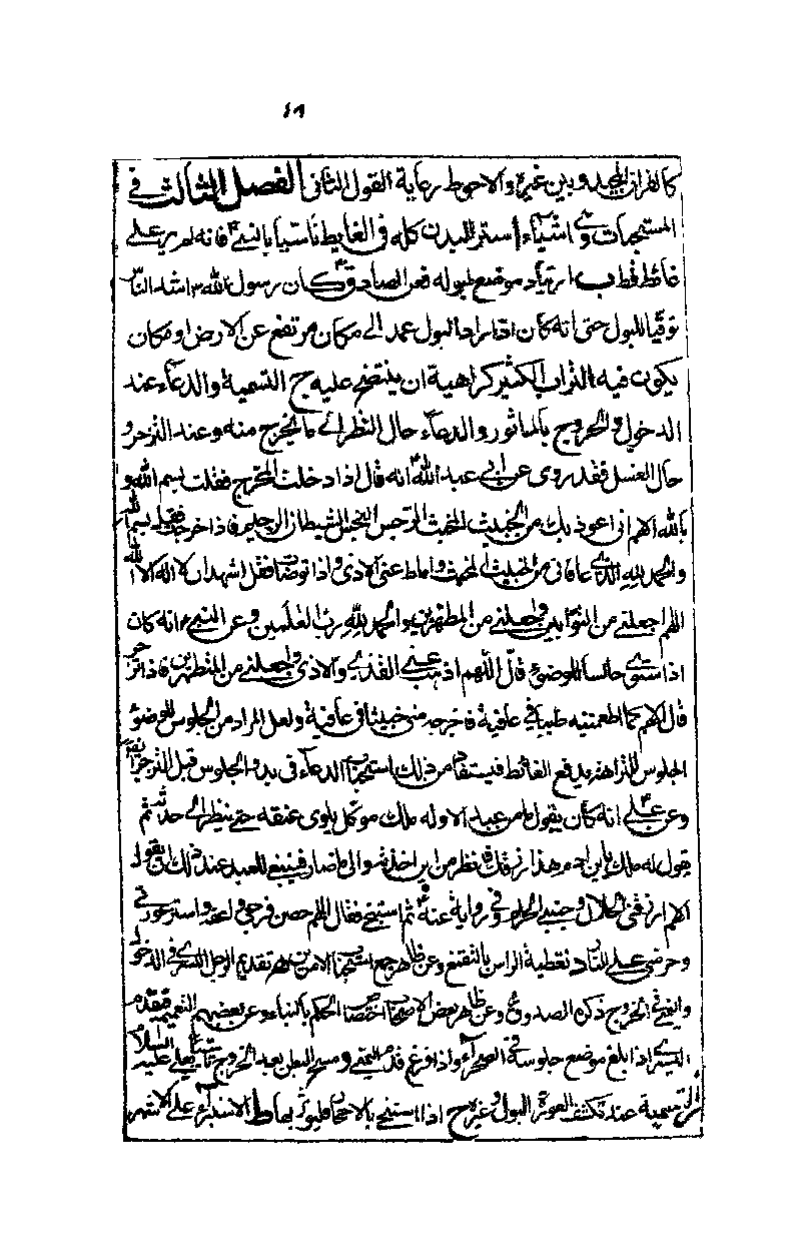 ٤٨
كالقرآن المجيد وبين غيره والاحوط رعاية القول الثانى الفصل الثالث فى
المستحبات وهى اشياء أ ستر البدن كله فى الغايط تأسيا بالنبى فانه لم ير على
غائط قط ب ارتياد موضع لبوله فعن الصادق كان رسول الله ص اشد الناس
توقيا للبول حتى انه كان اذا اراد البول عمد الى مكان مرتفع عن الارض او مكان
يكون فيه التراب الكثير كراهية ان ينتضح عليه ج التسمية والدعاء عند
الدخول والخروج بالماثور والدعاء حال النظر الى ما يخرج منه وعند التزحر و
حال الغسل فقد روى عن ابى عبد الله انه قال اذا دخلت المخرج فقلت بسم الله و
بالله اللهم انى اعوذ بك من الخبيث المخبث الرجس النجس الشيطان الرجيم فاذا خرجت فقل بسم الله
والحمد لله الذى عافانى من الخبيث المخبث واماط عنى الاذى واذا توضأت فقل اشهد ان لا اله الا الله
اللهم اجعلنى من التوابين واجعلنى من المطهرين والحمد لله رب العلمين وعن النبى انه كان
اذا استوى جالسا للوضوء قال اللهم اذهب عنى القذى والاذى واجعلنى من المتطهرين فاذا تزحر
قال اللهم كما اطعمتنيه طيبا فى عافية فاخرجه منى خبيثا فى عافية ولعل المراد من الجلوس للوضوء
الجلوس للتزحر فيستفاد من ذلك استحباب الدعاء فى بدو الجلوس قبل التزحر
وعن على انه كان يقول ما من عبد الا وله ملك موكل يلوى عنقه حتى ينظر الى حدثه ثم
يقول له ملك يابن ادم هذا رزقك فانظر من اين اخذته والى ما صار فينبغى للعبد عند ذلك ان يقول
اللهم ارزقنى الحلال وجنبنى الحرام وفى رواية عنه ثم استنجى فقال اللهم حصن فرجى واعفه واستر عورتى
وحرمنى على النار د تغطية الراس بالتقنع وعن ظاهر جمع استحباب الامرين ه تقديم الرجل اليسرى فى الدخول
واليمنى فى الخروج ذكره الصدوق وعن ظاهر بعض الاصحاب اختصاص الحكم بالبناء وعن بعضهم التعميم فيقدم
اليسرى اذا بلغ موضع جلوسه فى الصحراء واذا فرغ قدم اليمنى و مسح البطن بعد الخروج
التسمية عند تكشف العورة للبول وغيره ح اذا استنجى بالاحجار فليوتر بها ط الاستبراء على الاشهر